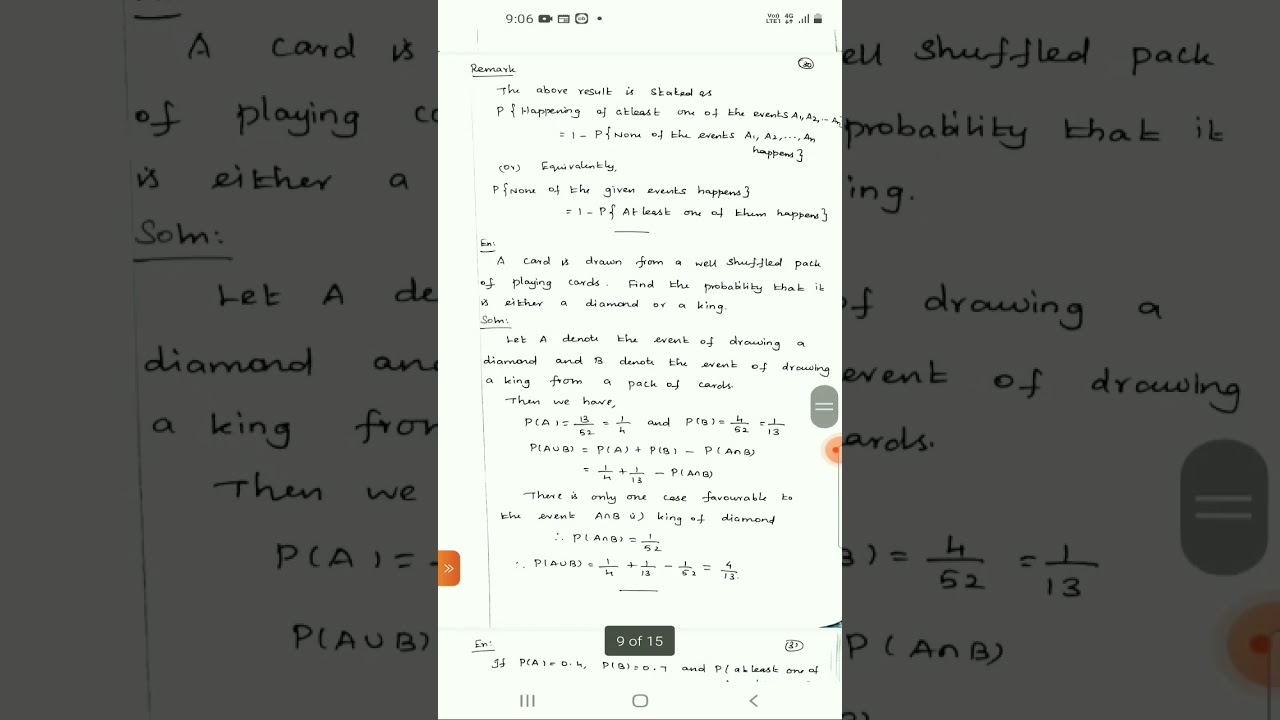 9:06
Vo) 4G
LTE1
Remark
30
The above result is stated as
P{Happening of atleast one of the events A1, A2, ... An}
= 1 - P{None of the events A1, A2, ..., An
happens}
(or) Equivalently,
P{None of the given events happens}
= 1 - P{Atleast one of them happens}
En:
A card is drawn from a well shuffled pack
of playing cards. Find the probability that it
is either a diamond or a king.
Soln:
Let A denote the event of drawing a
diamond and B denote the event of drawing
a king from a pack of cards.
Then we have,
P(A) = 13/52 = 1/4 and P(B) = 4/52 = 1/13
P(A∪B) = P(A) + P(B) - P(A∩B)
= 1/4 + 1/13 - P(A∩B)
There is only one case favourable to
the event A∩B is) king of diamond
∴ P(A∩B) = 1/52
∴ P(A∪B) = 1/4 + 1/13 - 1/52 = 4/13.
9 of 15
En:
If P(A) = 0.4, P(B) = 0.7 and P(atleast one of
A card is
of playing
is either a
Soln:
Let A de
diamond an
a king from
Then we
P(A) =
P(A∪B)
ell shuffled pack
probability that it
ing.
of drawing a
event of drawing
ards.
B) = 4/52 = 1/13
P(A∩B)